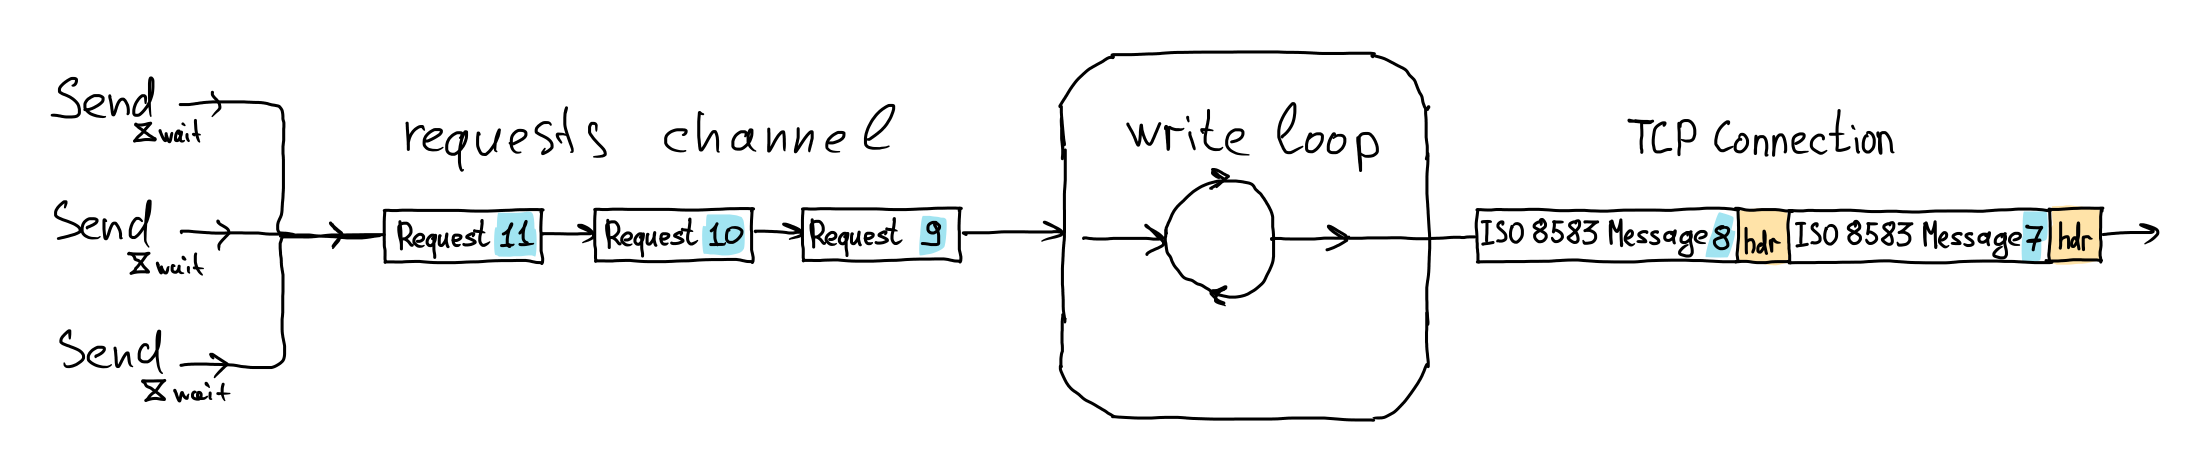 Send
wait
Send
wait
Send
wait
requests channel
Request 11
Request 10
Request 9
write loop
TCP Connection
ISO 8583 Message 8
hdr
ISO 8583 Message 7
hdr